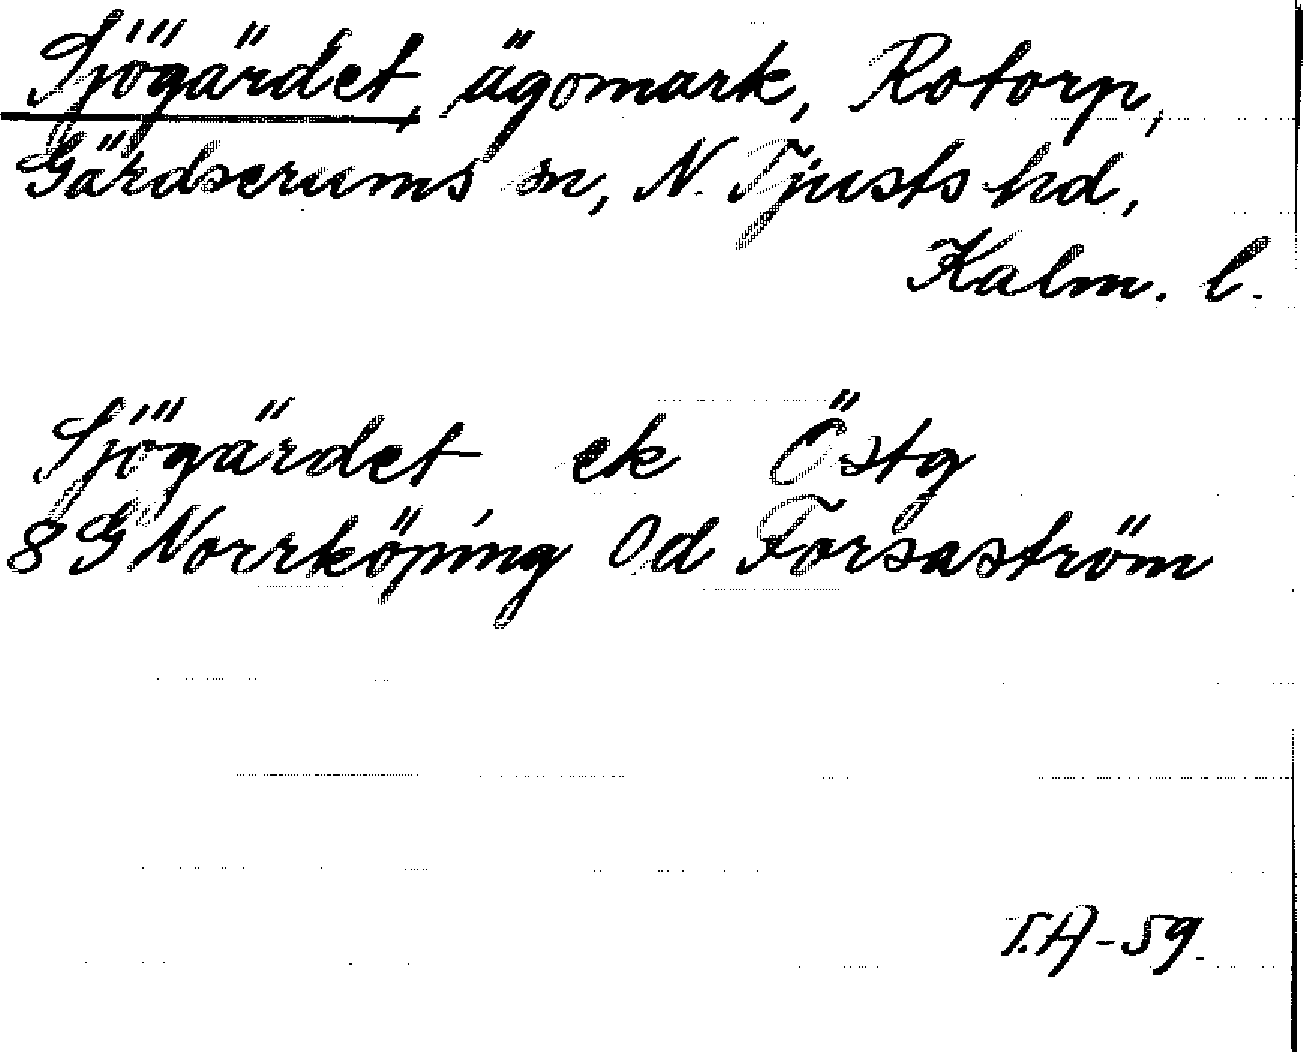 Sjögärdet, ägomark, Rotorp,
Gärdserums sn, N. Tjusts hd,
Kalm. l.
Sjögärdet ek Östg
8G Norrköping Od Forsaström
T.A-59.